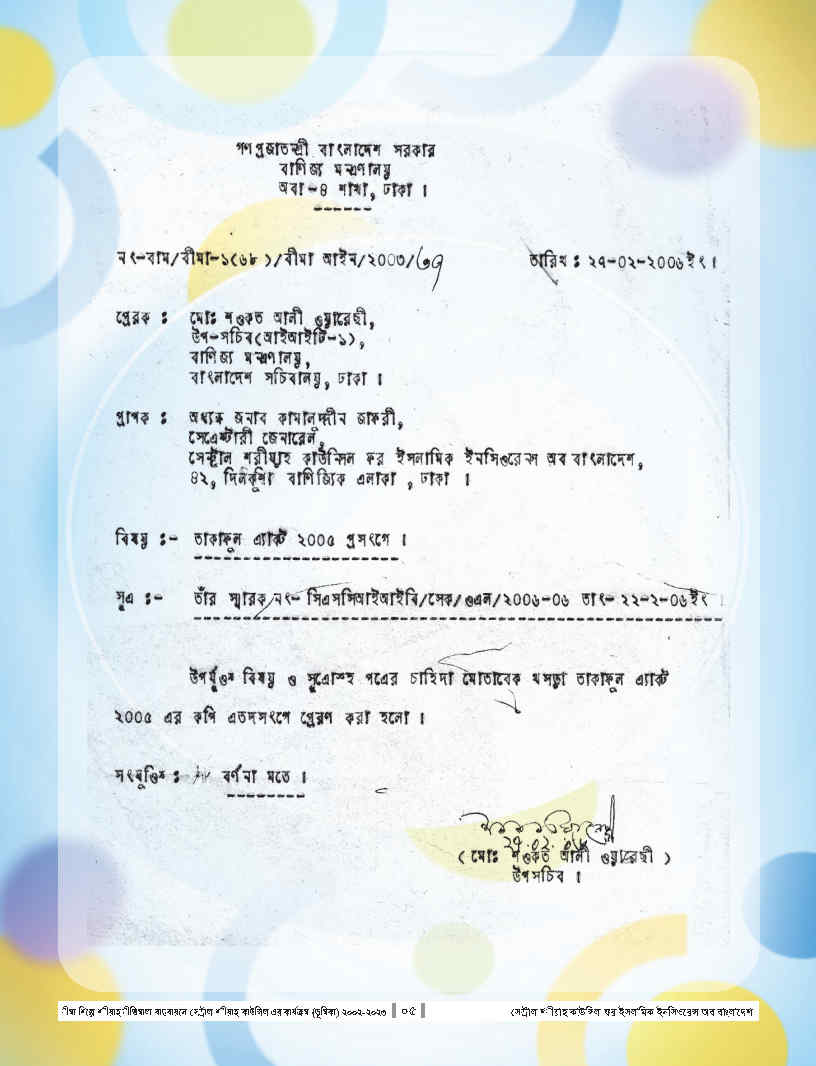 গণপ্রজাতন্ত্রী বাংলাদেশ সরকার
বাণিজ্য মন্ত্রণালয়
অবা-৪ শাখা, ঢাকা ।
নং-বাম/বীমা-১(৬৮)/বীমা আইন/২০০৩/৬৭
তারিখ : ২৭-০২-২০০৬ইং।
প্রেরক : মোঃ শওকত আলী ওয়ারেছী,
উপ-সচিব(আইআইটি-১),
বাণিজ্য মন্ত্রণালয়,
বাংলাদেশ সচিবালয়, ঢাকা ।
প্রাপক : অধ্যক্ষ জনাব কামালুদ্দীন জাফরী,
সেক্রেটারী জেনারেল,
সেন্ট্রাল শরীয়াহ্ কাউন্সিল ফর ইসলামিক ইনসিওরেন্স অব বাংলাদেশ,
৪২, দিলকুশা বাণিজ্যিক এলাকা , ঢাকা ।
বিষয় :- তাকাফুল এ্যাক্ট ২০০৫ প্রসংগে ।
সূত্র :- তাঁর স্মারক নং- সিএসসিআইআইবি/সেক/ওএল/২০০৬-০৬ তাং- ২২-২-০৬ইং ।
উপর্যুক্ত বিষয় ও সূত্রোস্হ পত্রের চাহিদা মোতাবেক খসড়া তাকাফুল এ্যাক্ট
২০০৫ এর কপি এতদসংগে প্রেরণ করা হলো ।
সংযুক্তি : বর্ণনা মতে ।
২৭.০২.০৬
( মোঃ শওকত আলী ওয়ারেছী )
উপসচিব ।
বীমা শিল্পে শরীয়াহ্ নীতিমালা বাস্তবায়নে সেন্ট্রাল শরীয়াহ্ কাউন্সিল এর কার্যক্রম (ভূমিকা) ২০০২-২০২৩ || ০৫ ||
সেন্ট্রাল শরীয়াহ্ কাউন্সিল ফর ইসলামিক ইনসিওরেন্স অব বাংলাদেশ